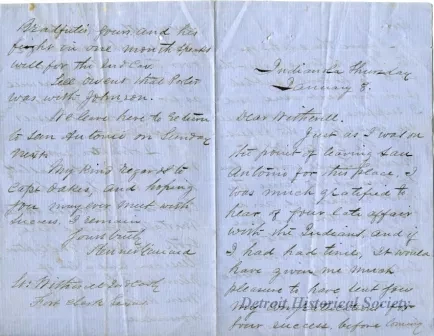 Indianola Thursday
January 8.
Dear Witherell.
Just as I was on
the point of leaving San
Antonio for this place, I
was much gratified to
hear of your late affair
with the Indians, and if
I had had time, it would
have given me much
pleasure to have sent you
my congratulations for
your success, before coming
four and his
fight in one month speaks
well for the 2nd Cav.
Tell Owens that Porter
was with Johnson.
We leave here to return
to San Antonio on Sunday
next.
My kind regards to
Capt Oakes, and hoping
you may ever meet with
success. I remain
Yours truly
Lt. Witherell
Fort Clark Texas
Detroit Historical Society